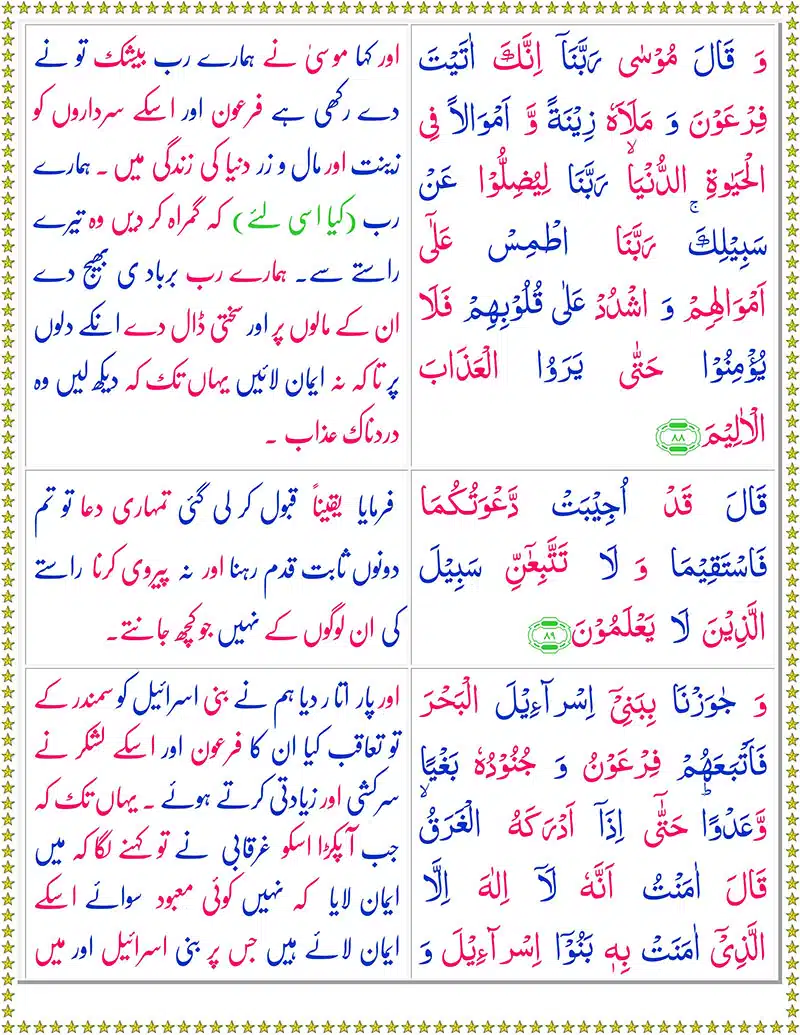 وَ قَالَ مُوْسٰى رَبَّنَاۤ اِنَّكَ اٰتَيْتَ
فِرْعَوْنَ وَ مَلَاَهٗ زِيْنَةً وَّ اَمْوَالًا فِى
الْحَيٰوةِ الدُّنْيَا ۙ رَبَّنَا لِيُضِلُّوْا عَنْ
سَبِيْلِكَ ۚ رَبَّنَا اطْمِسْ عَلٰٓى
اَمْوَالِهِمْ وَ اشْدُدْ عَلٰى قُلُوْبِهِمْ فَلَا
يُؤْمِنُوْا حَتّٰى يَرَوُا الْعَذَابَ
الْاَلِيْمَ ٨٨
اور کہا موسیٰ نے ہمارے رب بیشک تو نے
دے رکھی ہے فرعون اور اسکے سرداروں کو
زینت اور مال و زر دنیا کی زندگی میں ۔ ہمارے
رب (کیا اسی لئے) کہ گمراہ کر دیں وہ تیرے
راستے سے۔ ہمارے رب بربادی بھیج دے
ان کے مالوں پر اور سختی ڈال دے انکے دلوں
پر تاکہ نہ ایمان لائیں یہاں تک کہ دیکھ لیں وہ
دردناک عذاب ۔
قَالَ قَدْ اُجِيْبَتْ دَّعْوَتُكُمَا
فَاسْتَقِيْمَا وَ لَا تَتَّبِعٰٓنِّ سَبِيْلَ
الَّذِيْنَ لَا يَعْلَمُوْنَ ٨٩
فرمایا یقیناً قبول کر لی گئی تمہاری دعا تو تم
دونوں ثابت قدم رہنا اور نہ پیروی کرنا راستے
کی ان لوگوں کے نہیں جو کچھ جانتے۔
وَ جٰوَزْنَا بِبَنِىْۤ اِسْرآءِيْلَ الْبَحْرَ
فَاَتْبَعَهُمْ فِرْعَوْنُ وَ جُنُوْدُهٗ بَغْيًا
وَّعَدْوًا ؕ حَتّٰۤى اِذَاۤ اَدْرَكَهُ الْغَرَقُ ۙ
قَالَ اٰمَنْتُ اَنَّهٗ لَاۤ اِلٰهَ اِلَّا
الَّذِىْۤ اٰمَنَتْ بِهٖ بَنُوْۤا اِسْرآءِيْلَ وَ
اور پار اتار دیا ہم نے بنی اسرائیل کو سمندر کے
تو تعاقب کیا ان کا فرعون اور اسکے لشکر نے
سرکشی اور زیادتی کرتے ہوئے ۔ یہاں تک کہ
جب آپکڑا اسکو غرقابی نے تو کہنے لگا کہ میں
ایمان لایا کہ نہیں کوئی معبود سوائے اسکے
ایمان لائے ہیں جس پر بنی اسرائیل اور میں